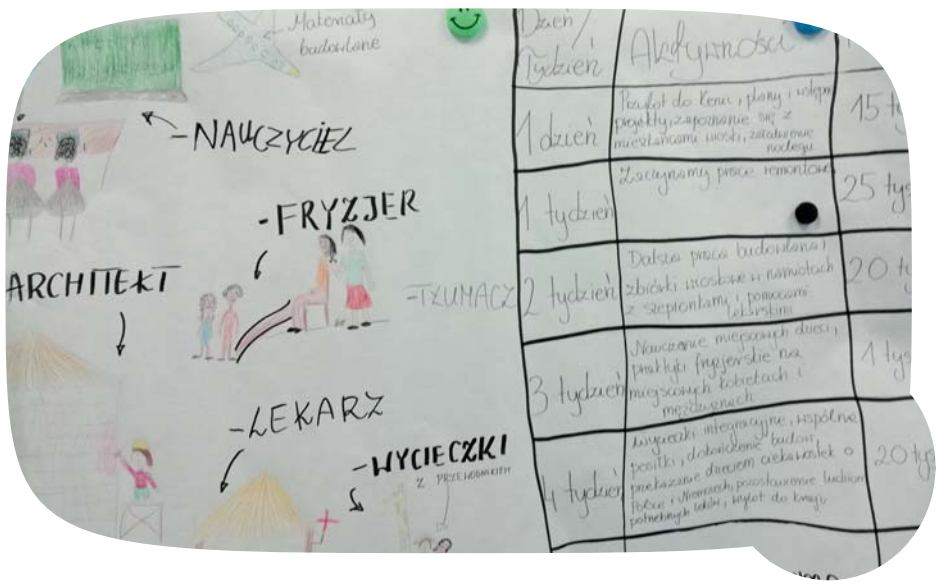 Materiały
budowlane
-NAUCZYCIEL
-FRYZJER
ARCHITEKT
-TŁUMACZ
-LEKARZ
-WYCIECZKI
Z PRZEWODNIKIEM
Dzień/
Tydzień
Aktywności
1 dzień
Przylot do Kenii, plany i wstępne
projekty, zapoznanie się z
mieszkańcami wioski, załatwienie
noclegu
15 ty
1 tydzień
Zaczynamy prace remontowe
25 tys
2 tydzień
Dalsza praca budowlana i
zbiórki wioskowe w namiotach
z szepionkami i pomocami
lekarskimi
20 ty
3 tydzień
Nauczanie miejscowych dzieci,
praktyki fryzjerskie na
miejscowych kobietach i
mężczyznach
1 tys
4 tydzień
wycieczki integracyjne, wspólne
posiłki, dokończenie budowy
przekazanie dzieciom ciekawostek o
Polsce i Niemczech, pozostawienie ludziom
potrzebnych leków, wylot do kraju
20 tys